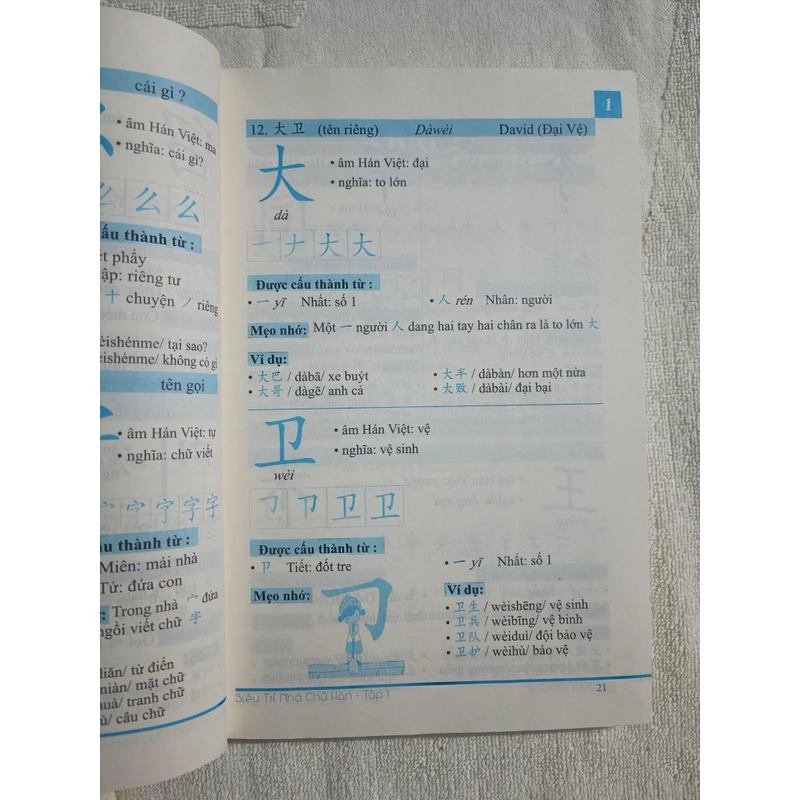 cái gì ?
• âm Hán Việt: ma
• nghĩa: cái gì?
么 么 么
cấu thành từ :
nét phẩy
riêng tư
chuyện ノ riêng
wèishénme/ tại sao?
không có gì
tên gọi
• âm Hán Việt: tự
• nghĩa: chữ viết
宀 宁 字 字
thành từ :
Miên: mái nhà
Tử: đứa con
Trong nhà 宀 đứa
ngồi viết chữ 字
từ điển
miàn/ mặt chữ
huà/ tranh chữ
câu chữ
1
12. 大卫 (tên riêng) Dàwèi David (Đại Vệ)
大
dà
• âm Hán Việt: đại
• nghĩa: to lớn
一 ナ 大 大
Được cấu thành từ :
• 一 yī Nhất: số 1
• 人 rén Nhân: người
Mẹo nhớ: Một 一 người 人 dang hai tay hai chân ra là to lớn 大
Ví dụ:
• 大巴 / dàbā/ xe buýt
• 大半/ dàbàn/ hơn một nửa
• 大哥/ dàgē/ anh cả
• 大败/ dàbài/ đại bại
卫
wèi
• âm Hán Việt: vệ
• nghĩa: vệ sinh
㇆ 卩 卫 卫
Được cấu thành từ :
• 卩 Tiết: đốt tre
• 一 yī Nhất: số 1
Mẹo nhớ:
Ví dụ:
• 卫生/ wèishēng/ vệ sinh
• 卫兵/ wèibīng/ vệ binh
• 卫队/ wèiduì/ đội bảo vệ
• 卫护/ wèihù/ bảo vệ
Siêu Trí Nhớ Chữ Hán - Tập 1
21